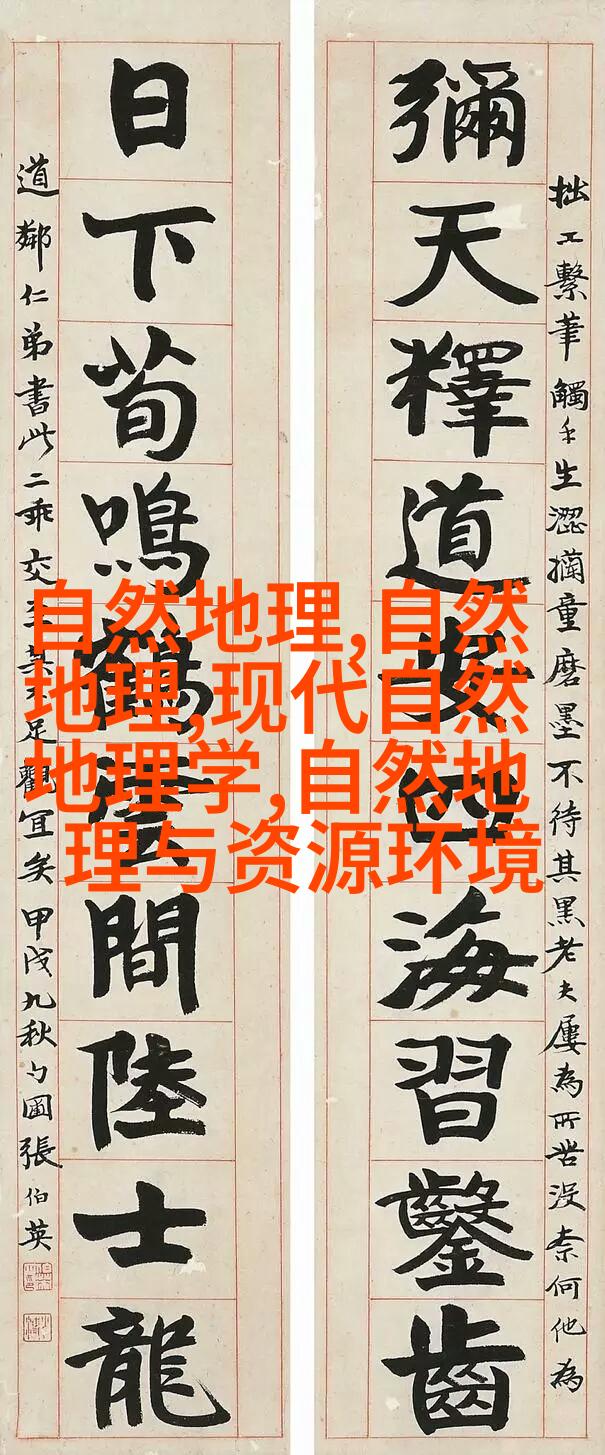 彌天釋道安四海習鑿齒
拙工繫筆觸手生澀童磨墨不待其黑老夫屢為所苦沒柰何他為
日下荀鳴鶴雲間陸士龍
道鄰仁弟書此二乖交至其不足觀宜矣甲戌九秋勺圃張伯英
自然地理,自然
地理,现代自然
地理学,自然地
理与资源环境